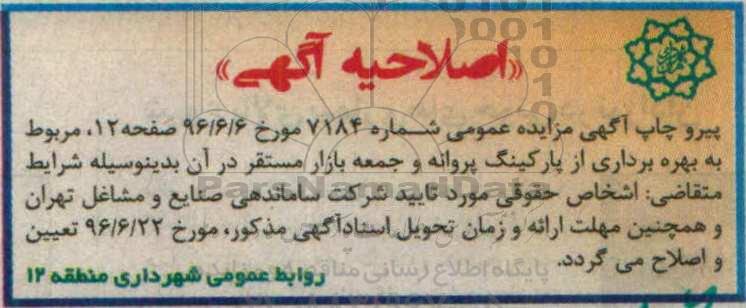 «اصلاحیه آگهی»
پیرو چاپ آگهی مزایده عمومی شماره ۷۱۸۴ مورخ ۹۶/۶/۶ صفحه۱۲، مربوط
به بهره برداری از پارکینگ پروانه و جمعه بازار مستقر در آن بدینوسیله شرایط
متقاضی: اشخاص حقوقی مورد تایید شرکت ساماندهی صنایع و مشاغل تهران
و همچنین مهلت ارائه و زمان تحویل اسنادآگهی مذکور، مورخ ۹۶/۶/۲۲ تعیین
و اصلاح می گردد.
روابط عمومی شهرداری منطقه ۱۲
ParsNamadData
پایگاه اطلاع رسانی